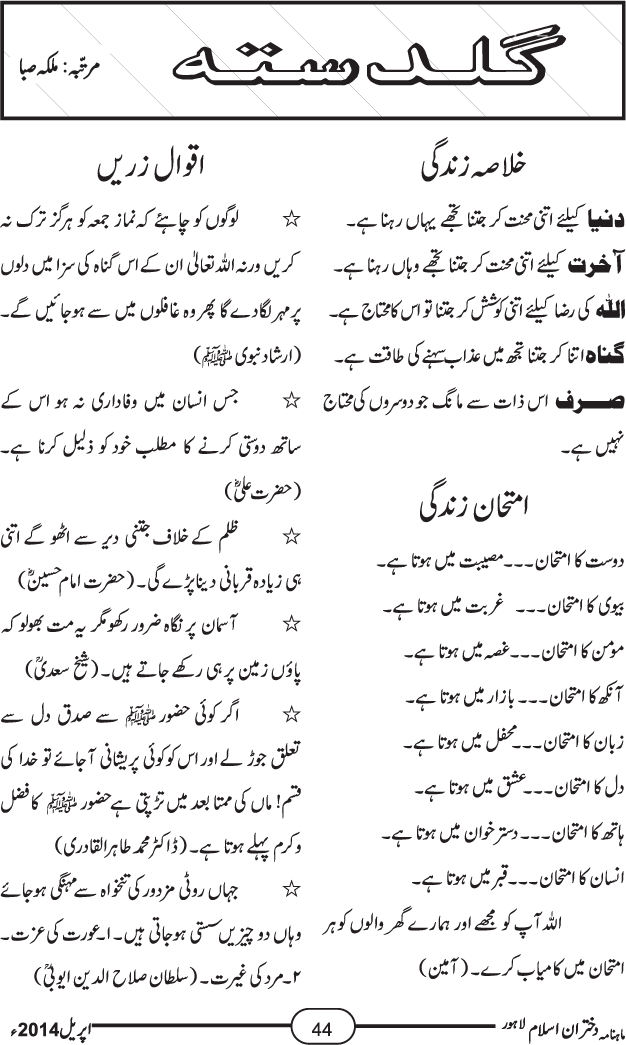 گلدستہ
مرتبہ: ملکہ صبا
خلاصہ زندگی
دنیا کیلئے اتنی محنت کر جتنا تجھے یہاں رہنا ہے۔
آخرت کیلئے اتنی محنت کر جتنا تجھے وہاں رہنا ہے۔
اللہ کی رضا کیلئے اتنی کوشش کر جتنا تو اس کا محتاج ہے۔
گناہ اتنا کر جتنا تجھ میں عذاب سہنے کی طاقت ہے۔
صرف اس ذات سے مانگ جو دوسروں کی محتاج
نہیں ہے۔
امتحان زندگی
دوست کا امتحان۔۔۔مصیبت میں ہوتا ہے۔
بیوی کا امتحان۔۔۔ غربت میں ہوتا ہے۔
مؤمن کا امتحان۔۔۔غصہ میں ہوتا ہے۔
آنکھ کا امتحان۔۔۔ بازار میں ہوتا ہے۔
زبان کا امتحان۔۔۔محفل میں ہوتا ہے۔
دل کا امتحان۔۔۔عشق میں ہوتا ہے۔
ہاتھ کا امتحان۔۔۔ دسترخوان میں ہوتا ہے۔
انسان کا امتحان۔۔۔قبر میں ہوتا ہے۔
اللہ آپ کو مجھے اور ہمارے گھر والوں کو ہر
امتحان میں کامیاب کرے۔ (آمین)
اقوال زریں
☆ لوگوں کو چاہئے کہ نماز جمعہ کو ہرگز ترک نہ
کریں ورنہ اللہ تعالیٰ ان کے اس گناہ کی سزا میں دلوں
پر مہر لگادے گا پھر وہ غافلوں میں سے ہوجائیں گے۔
(ارشاد نبوی ﷺ)
☆ جس انسان میں وفاداری نہ ہو اس کے
ساتھ دوستی کرنے کا مطلب خود کو ذلیل کرنا ہے۔
(حضرت علیؓ)
☆ ظلم کے خلاف جتنی دیر سے اٹھو گے اتنی
ہی زیادہ قربانی دینا پڑے گی۔ (حضرت امام حسینؓ)
☆ آسمان پر نگاہ ضرور رکھو مگر یہ مت بھولو کہ
پاؤں زمین پر ہی رکھے جاتے ہیں۔ (شیخ سعدیؒ)
☆ اگر کوئی حضور ﷺ سے صدق دل سے
تعلق جوڑ لے اور اس کو کوئی پریشانی آجائے تو خدا کی
قسم! ماں کی ممتا بعد میں تڑپتی ہے حضور ﷺ کا فضل
وکرم پہلے ہوتا ہے۔ (ڈاکٹر محمد طاہرالقادری)
☆ جہاں روٹی مزدور کی تنخواہ سے مہنگی ہوجائے
وہاں دو چیزیں سستی ہوجاتی ہیں۔ ا۔عورت کی عزت۔
۲۔مرد کی غیرت۔ (سلطان صلاح الدین ایوبیؒ)
ماہنامہ دختران اسلام لاہور
44
اپریل 2014ء